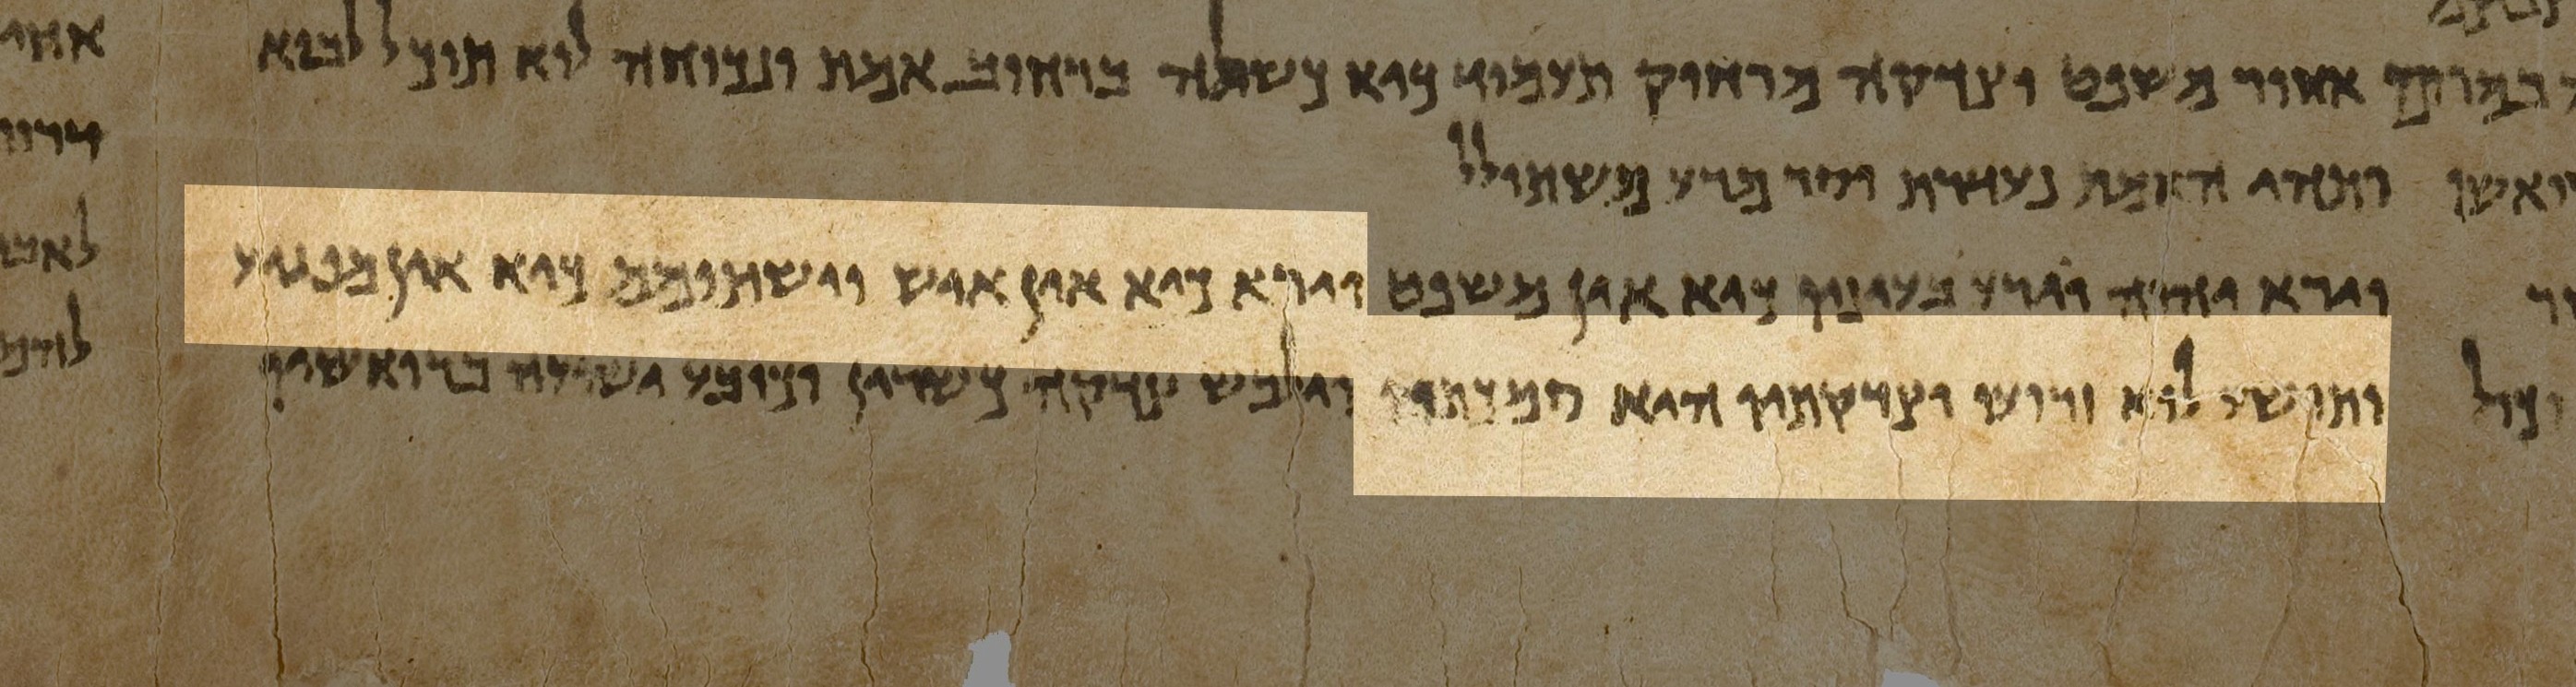 אחור משפט וצדקה מרחוק תעמוד כיא כשלה ברחוב אמת ונכוחה לוא תוכל לבוא
ותהי האמת נעדרת וסר מרע משתולל
וירא יהוה וירע בעיניו כיא אין משפט וירא כיא אין איש וישתומם כיא אין מפגיע
ותושע לוא זרועו וצדקתיו היא סמכתהו וילבש צדקה כשריון וכובע ישועה ברואשיו